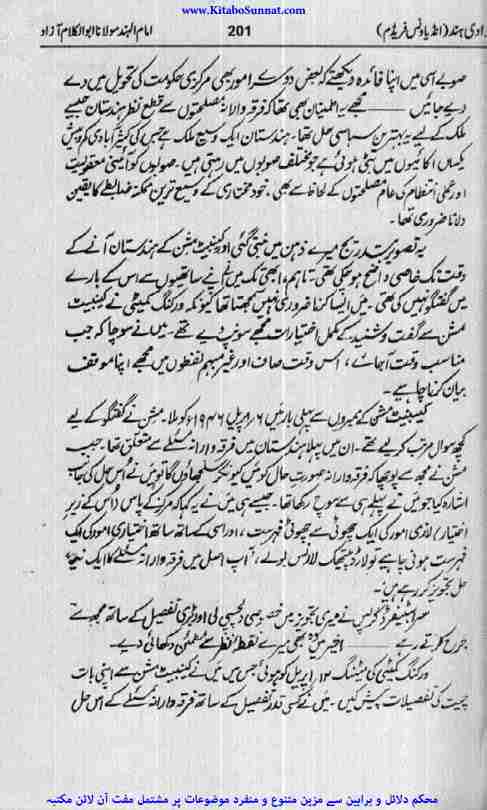 www.KitaboSunnat.com
ادی ہند (انڈیا ونس فریڈم) 201 امام الہند مولانا ابوالکلام آزاد
صوبے اسی میں اپنا فائدہ دیکھتے کہ بعض دوسرے امور بھی مرکزی حکومت کی تحویل میں دے
دیے جائیں ——— مجھے یہ اطمینان بھی تھا کہ فرقہ وارانہ مصلحتوں سے قطع نظر ہندستان جیسے
ملک کے لیے یہ بہترین سیاسی حل تھا۔ ہندستان ایک وسیع ملک ہے جس کی کثیر آبادی کم و بیش
یکساں اکائیوں میں بٹی ہوئی ہے جو مختلف صوبوں میں رہتی ہیں۔ صوبوں کو آئینی معقولیت
اور عملی انتظام کی عام مصلحتوں کے لحاظ سے بھی، خود مختاری کے وسیع ترین ممکنہ ضابطے کا یقین
دلانا ضروری تھا۔
یہ تصویر بتدریج میرے ذہن میں بنتی گئی اور کیبنیٹ مشن کے ہندستان آنے کے
وقت تک خاصی واضح ہو چکی تھی۔ تاہم، ابھی تک میں نے اپنے ساتھیوں سے اس کے بارے
میں گفتگو نہیں کی تھی۔ میں ایسا کرنا ضروری نہیں سمجھتا تھا کیونکہ ورکنگ کمیٹی نے کیبنیٹ
مشن سے گفت و شنید کے مکمل اختیارات مجھے سونپ دیے تھے۔ میں نے سوچا کہ جب
مناسب وقت آجائے، اس وقت صاف اور غیر مبہم لفظوں میں مجھے اپنا موقف
بیان کرنا چاہیے۔
کیبنیٹ مشن کے ممبروں سے پہلی بار میں ۶؍ اپریل ۱۹۴۶ء کو ملا۔ مشن نے گفتگو کے لیے
کچھ سوال مرتب کر لیے تھے۔ ان میں پہلا ہندستان میں فرقہ وارانہ مسئلے سے متعلق تھا۔ جب
مشن نے مجھ سے پوچھا کہ فرقہ وارانہ صورت حال کو میں کیونکر سلجھاؤں گا تو میں نے اُس حل کی جانب
اشارہ کیا جو میں نے پہلے ہی سے سوچ رکھا تھا۔ جیسے ہی میں نے یہ کہا کہ مرکز کے پاس (اس کے زیر
اختیار) لازمی امور کی ایک چھوٹی سے چھوٹی فہرست، اور اسی کے ساتھ ساتھ اختیاری امور کی ایک
فہرست ہونی چاہیے تو لارڈ پیتھک لارنس بولے، "آپ اصل میں فرقہ وارانہ مسئلے کا ایک نیا
حل تجویز کر رہے ہیں۔"
سر اسٹیفرڈ کرپس نے میری تجویز میں خصوصی دلچسپی لی اور بڑی تفصیل کے ساتھ مجھ سے
جرح کرتے رہے ——— اخیر میں وہ بھی میرے نقطۂ نظر سے مطمئن دکھائی دیے۔
ورکنگ کمیٹی کی میٹنگ ۱۲؍ اپریل کو ہوئی جس میں میں نے کیبنیٹ مشن سے اپنی بات
چیت کی تفصیلات پیش کیں۔ میں نے کسی قدر تفصیل کے ساتھ فرقہ وارانہ مسئلے کے اس حل
محکم دلائل و براہین سے مزین متنوع و منفرد موضوعات پر مشتمل مفت آن لائن مکتبہ